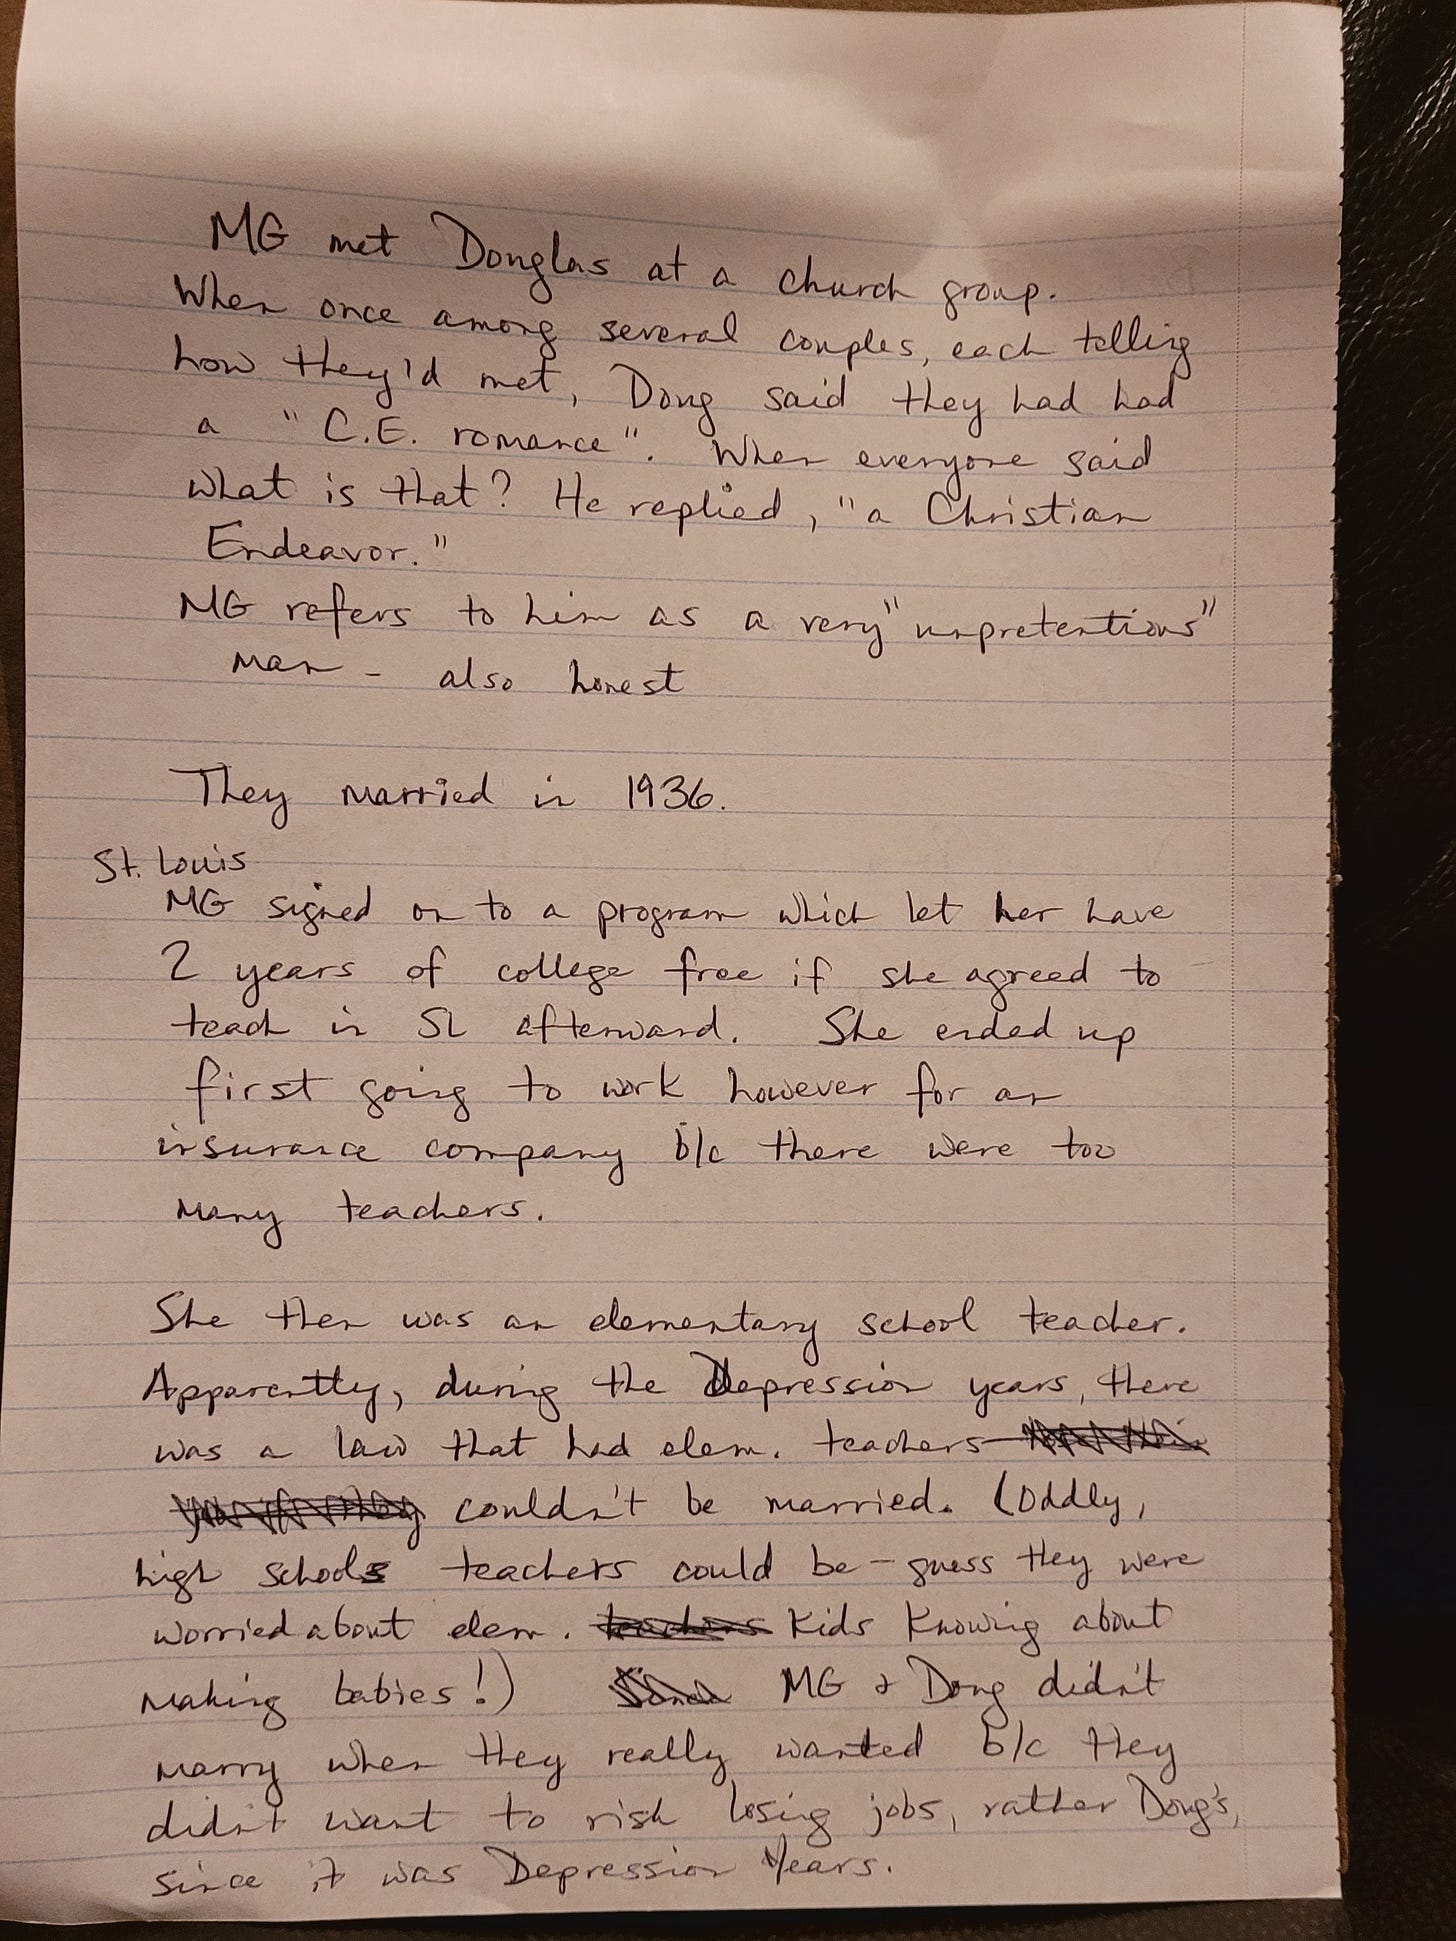 MG met Douglas at a church group.
When once among several couples, each telling
how they'd met, Doug said they had had
a "C.E. romance". When everyone said
what is that? He replied, "a Christian
Endeavor."
MG refers to him as a very "unpretentious"
man - also honest
They married in 1936.
St. Louis
MG signed on to a program which let her have
2 years of college free if she agreed to
teach in SL afterward. She ended up
first going to work however for an
insurance company b/c there were too
many teachers.
She then was an elementary school teacher.
Apparently, during the Depression years, there
was a law that had elem. teachers
couldn't be married. (Oddly,
high schools teachers could be - guess they were
worried about elem. teachers kids knowing about
making babies!) Since MG & Doug didn't
marry when they really wanted b/c they
didn't want to risk losing jobs, rather Doug's,
since it was Depression Years.